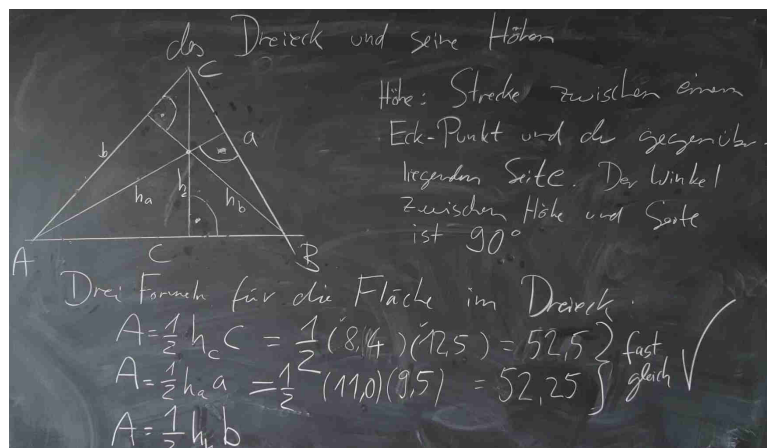 das Dreieck und seine Höhen
C
b
a
ha
hc
hb
A
C
B
Höhe: Strecke zwischen einem
Eck-Punkt und der gegenüber-
liegenden Seite. Der Winkel
zwischen Höhe und Seite
ist 90°
Drei Formeln für die Fläche im Dreieck.
A = 1/2 hc C = 1/2 (8,4)(12,5) = 52,5 } fast
A = 1/2 ha a = 1/2 (11,0)(9,5) = 52,25 } gleich ✓
A = 1/2 hb b